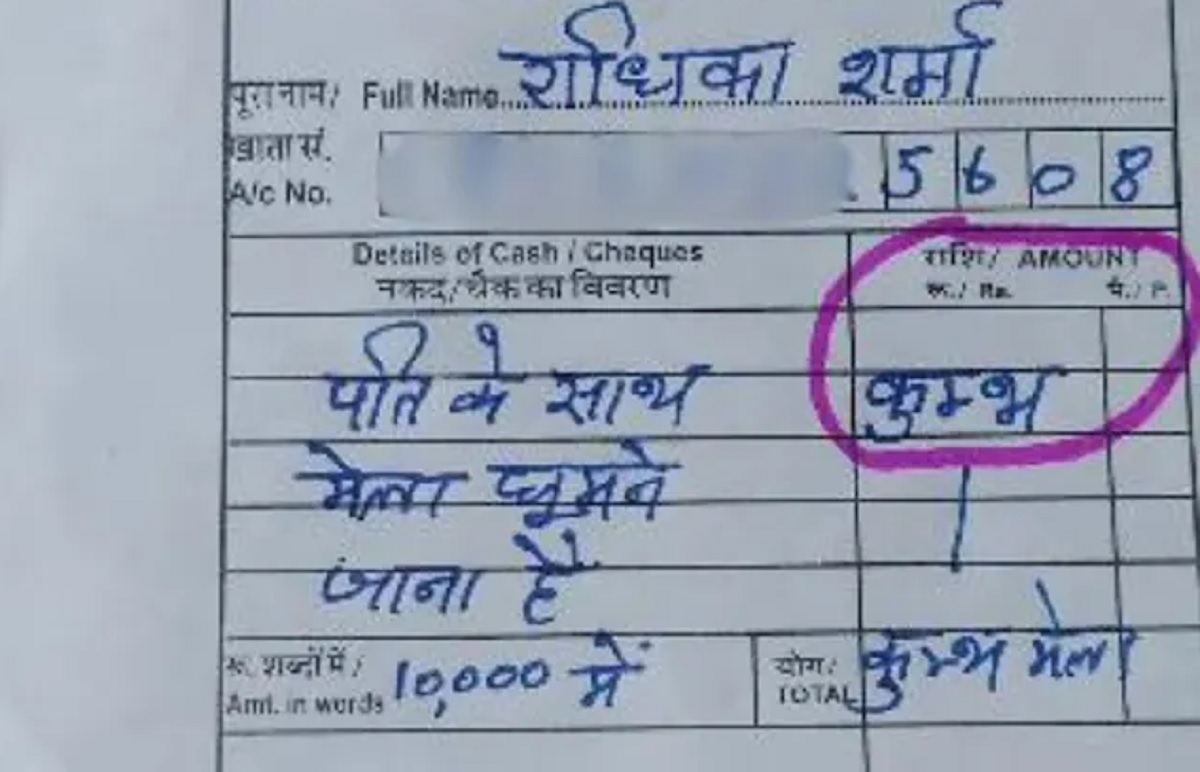 पूरा नाम/ Full Name राधिका शर्मा
खाता सं.
A/c No. 5608
Details of Cash / Cheques राशि/ AMOUNT
नकद/चैक का विवरण रू./ Rs. पै./ P.
पति के साथ कुम्भ
मेला घूमने
जाना है
रू. शब्दों में/ योग/
Amt. in words 10,000 में TOTAL कुम्भ मेला